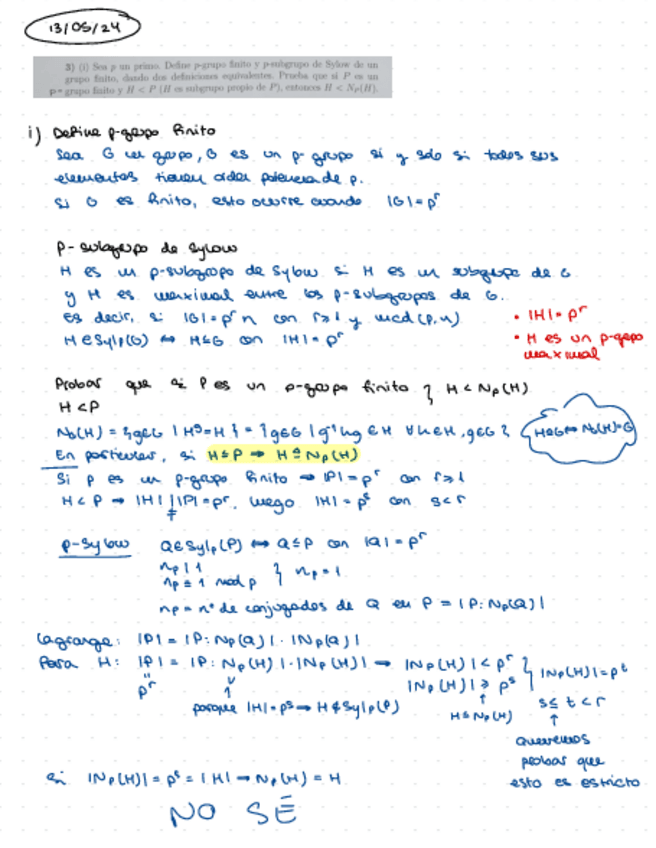 13/05/24
3) (i) Sea p un primo. Define p-grupo finito y p-subgrupo de Sylow de un
grupo finito, dando dos definiciones equivalentes. Prueba que si P es un
p-grupo finito y H < P (H es subgrupo propio de P), entonces H < N_P(H).
i) Define p-grupo finito
Sea G un grupo, G es un p-grupo si y solo si todos sus
elementos tienen orden potencia de p.
Si G es finito, esto ocurre cuando |G| = p^r
p-subgrupo de Sylow
H es un p-subgrupo de Sylow si H es un subgrupo de G
y H es maximal entre los p-subgrupos de G.
Es decir, si |G| = p^r n con r≥1 y mcd(p,n)
H∈Syl_p(G) ⇔ H≤G con |H| = p^r
• |H| = p^r
• H es un p-grupo
maximal
Probar que si P es un p-grupo finito } H < N_P(H)
H < P
N_G(H) = {g∈G | H^g = H} = {g∈G | g^-1 h g ∈ H ∀h∈H, g∈G}
H⊴G ⇔ N_G(H)=G
En particular, si H≤P → H ⊴ N_P(H)
Si P es un p-grupo finito → |P| = p^r con r≥1
H < P → |H| | |P| = p^r, luego |H| = p^s con s<r
≠
p-Sylow Q∈Syl_p(P) ⇔ Q≤P con |Q| = p^r
n_p | 1
n_p ≡ 1 mod p } n_p = 1
n_p = nº de conjugados de Q en P = |P : N_P(Q)|
Lagrange: |P| = |P : N_P(Q)| · |N_P(Q)|
Para H: |P| = |P : N_P(H)| · |N_P(H)| → |N_P(H)| < p^r
|N_P(H)| ≥ p^s } |N_P(H)| = p^t
p^r
porque |H| = p^s → H ∉ Syl_p(P)
H≤N_P(H)
s ≤ t < r
Queremos
probar que
esto es estricto
Si |N_P(H)| = p^s = |H| → N_P(H) = H
NO SÉ